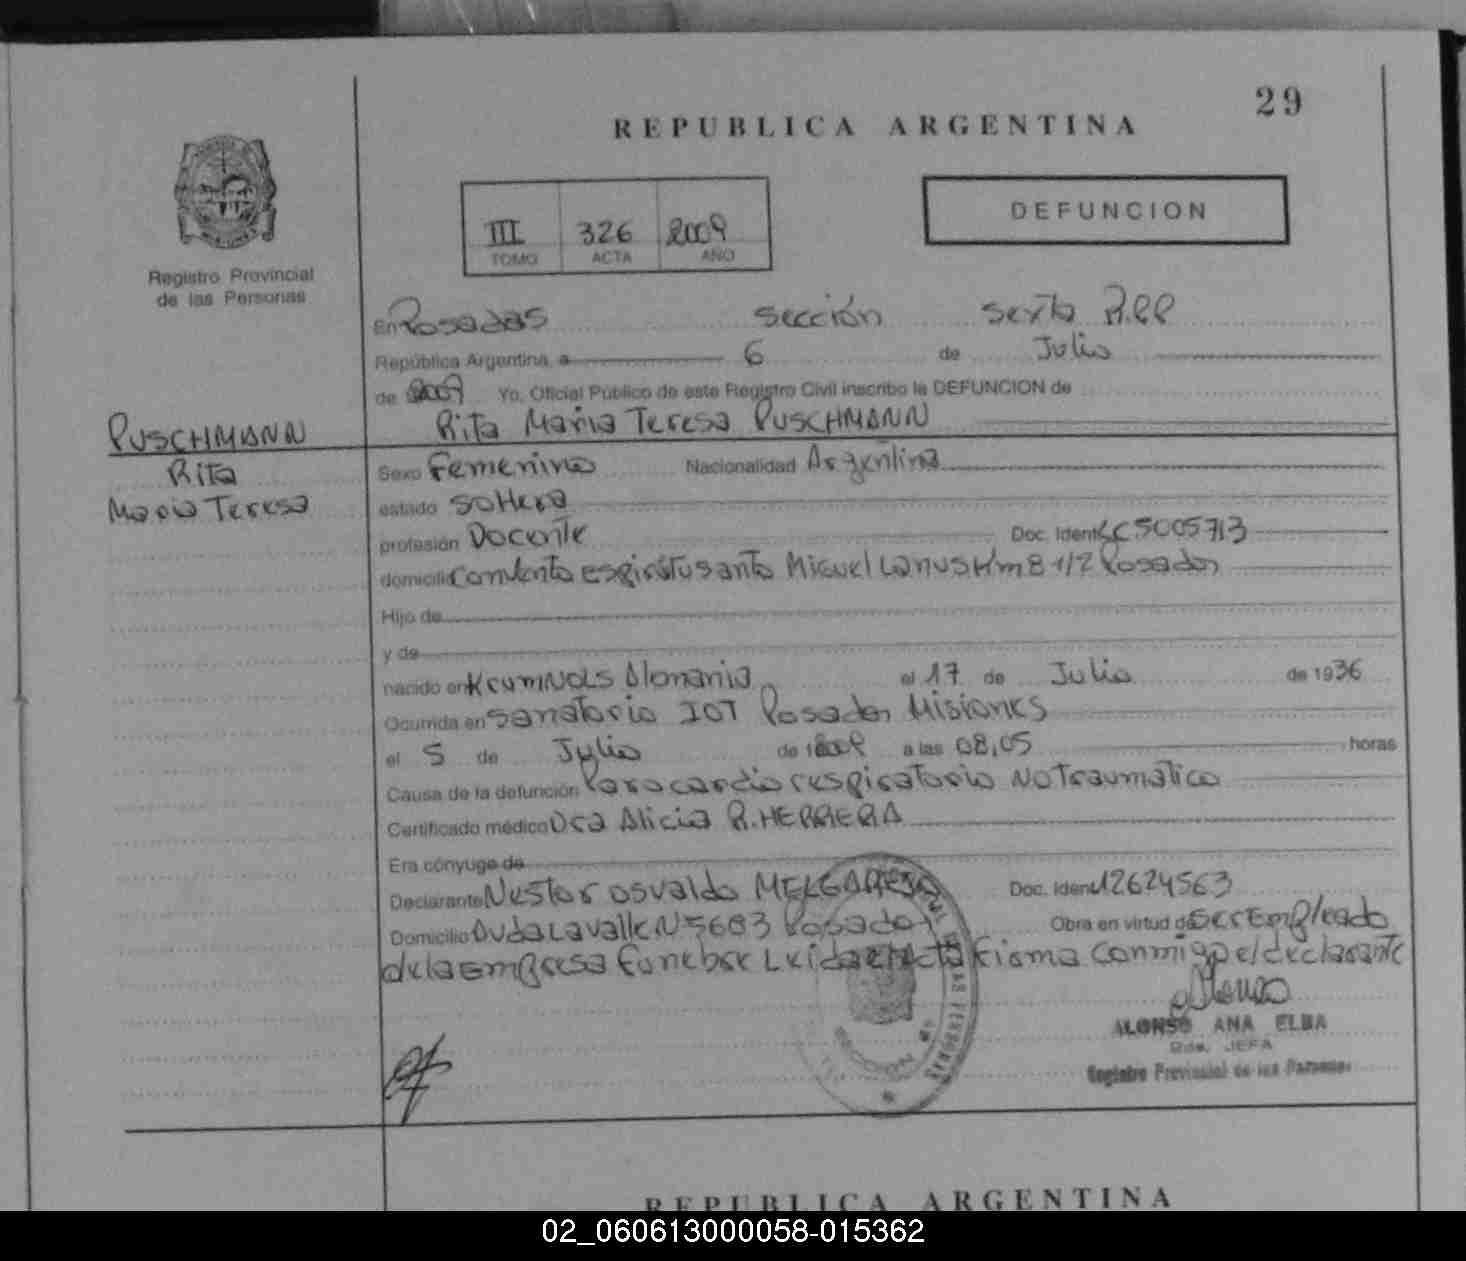 29
REPUBLICA ARGENTINA
DEFUNCION
III 326 2009
TOMO ACTA AÑO
Registro Provincial
de las Personas
En Posadas sección sexta R.PP
República Argentina, a 6 de Julio
de 2009 Yo, Oficial Público de este Registro Civil inscribo la DEFUNCION de
Rita Maria Teresa PUSCHMANN
PUSCHMANN
Rita
Maria Teresa
Sexo Femenino Nacionalidad Argentina
estado soltera
profesión Docente Doc. Ident. LC 5005713
domicilio convento espiritu santo Miguel Lanus Km 8 1/2 Posadas
Hijo de
y de
nacido en Krumnols Alemania el 17 de Julio de 1936
Ocurrida en sanatorio IOT Posadas Misiones
el 5 de Julio de 2009 a las 08,05 horas
Causa de la defunción Paro cardio respiratorio No Traumatico
Certificado médico Dra Alicia R. HERRERA
Era cónyuge de
Declarante Nestor osvaldo MELGAREJO Doc. Ident. 12624563
Domicilio Avda Lavalle Nº 5603 Posadas Obra en virtud de ser Empleado
de la Empresa Funebre Leida el Acta firma conmigo el declarante
ALONSO ANA ELBA
JEFA
Registro Provincial de las Personas
REPUBLICA ARGENTINA
02_060613000058-015362